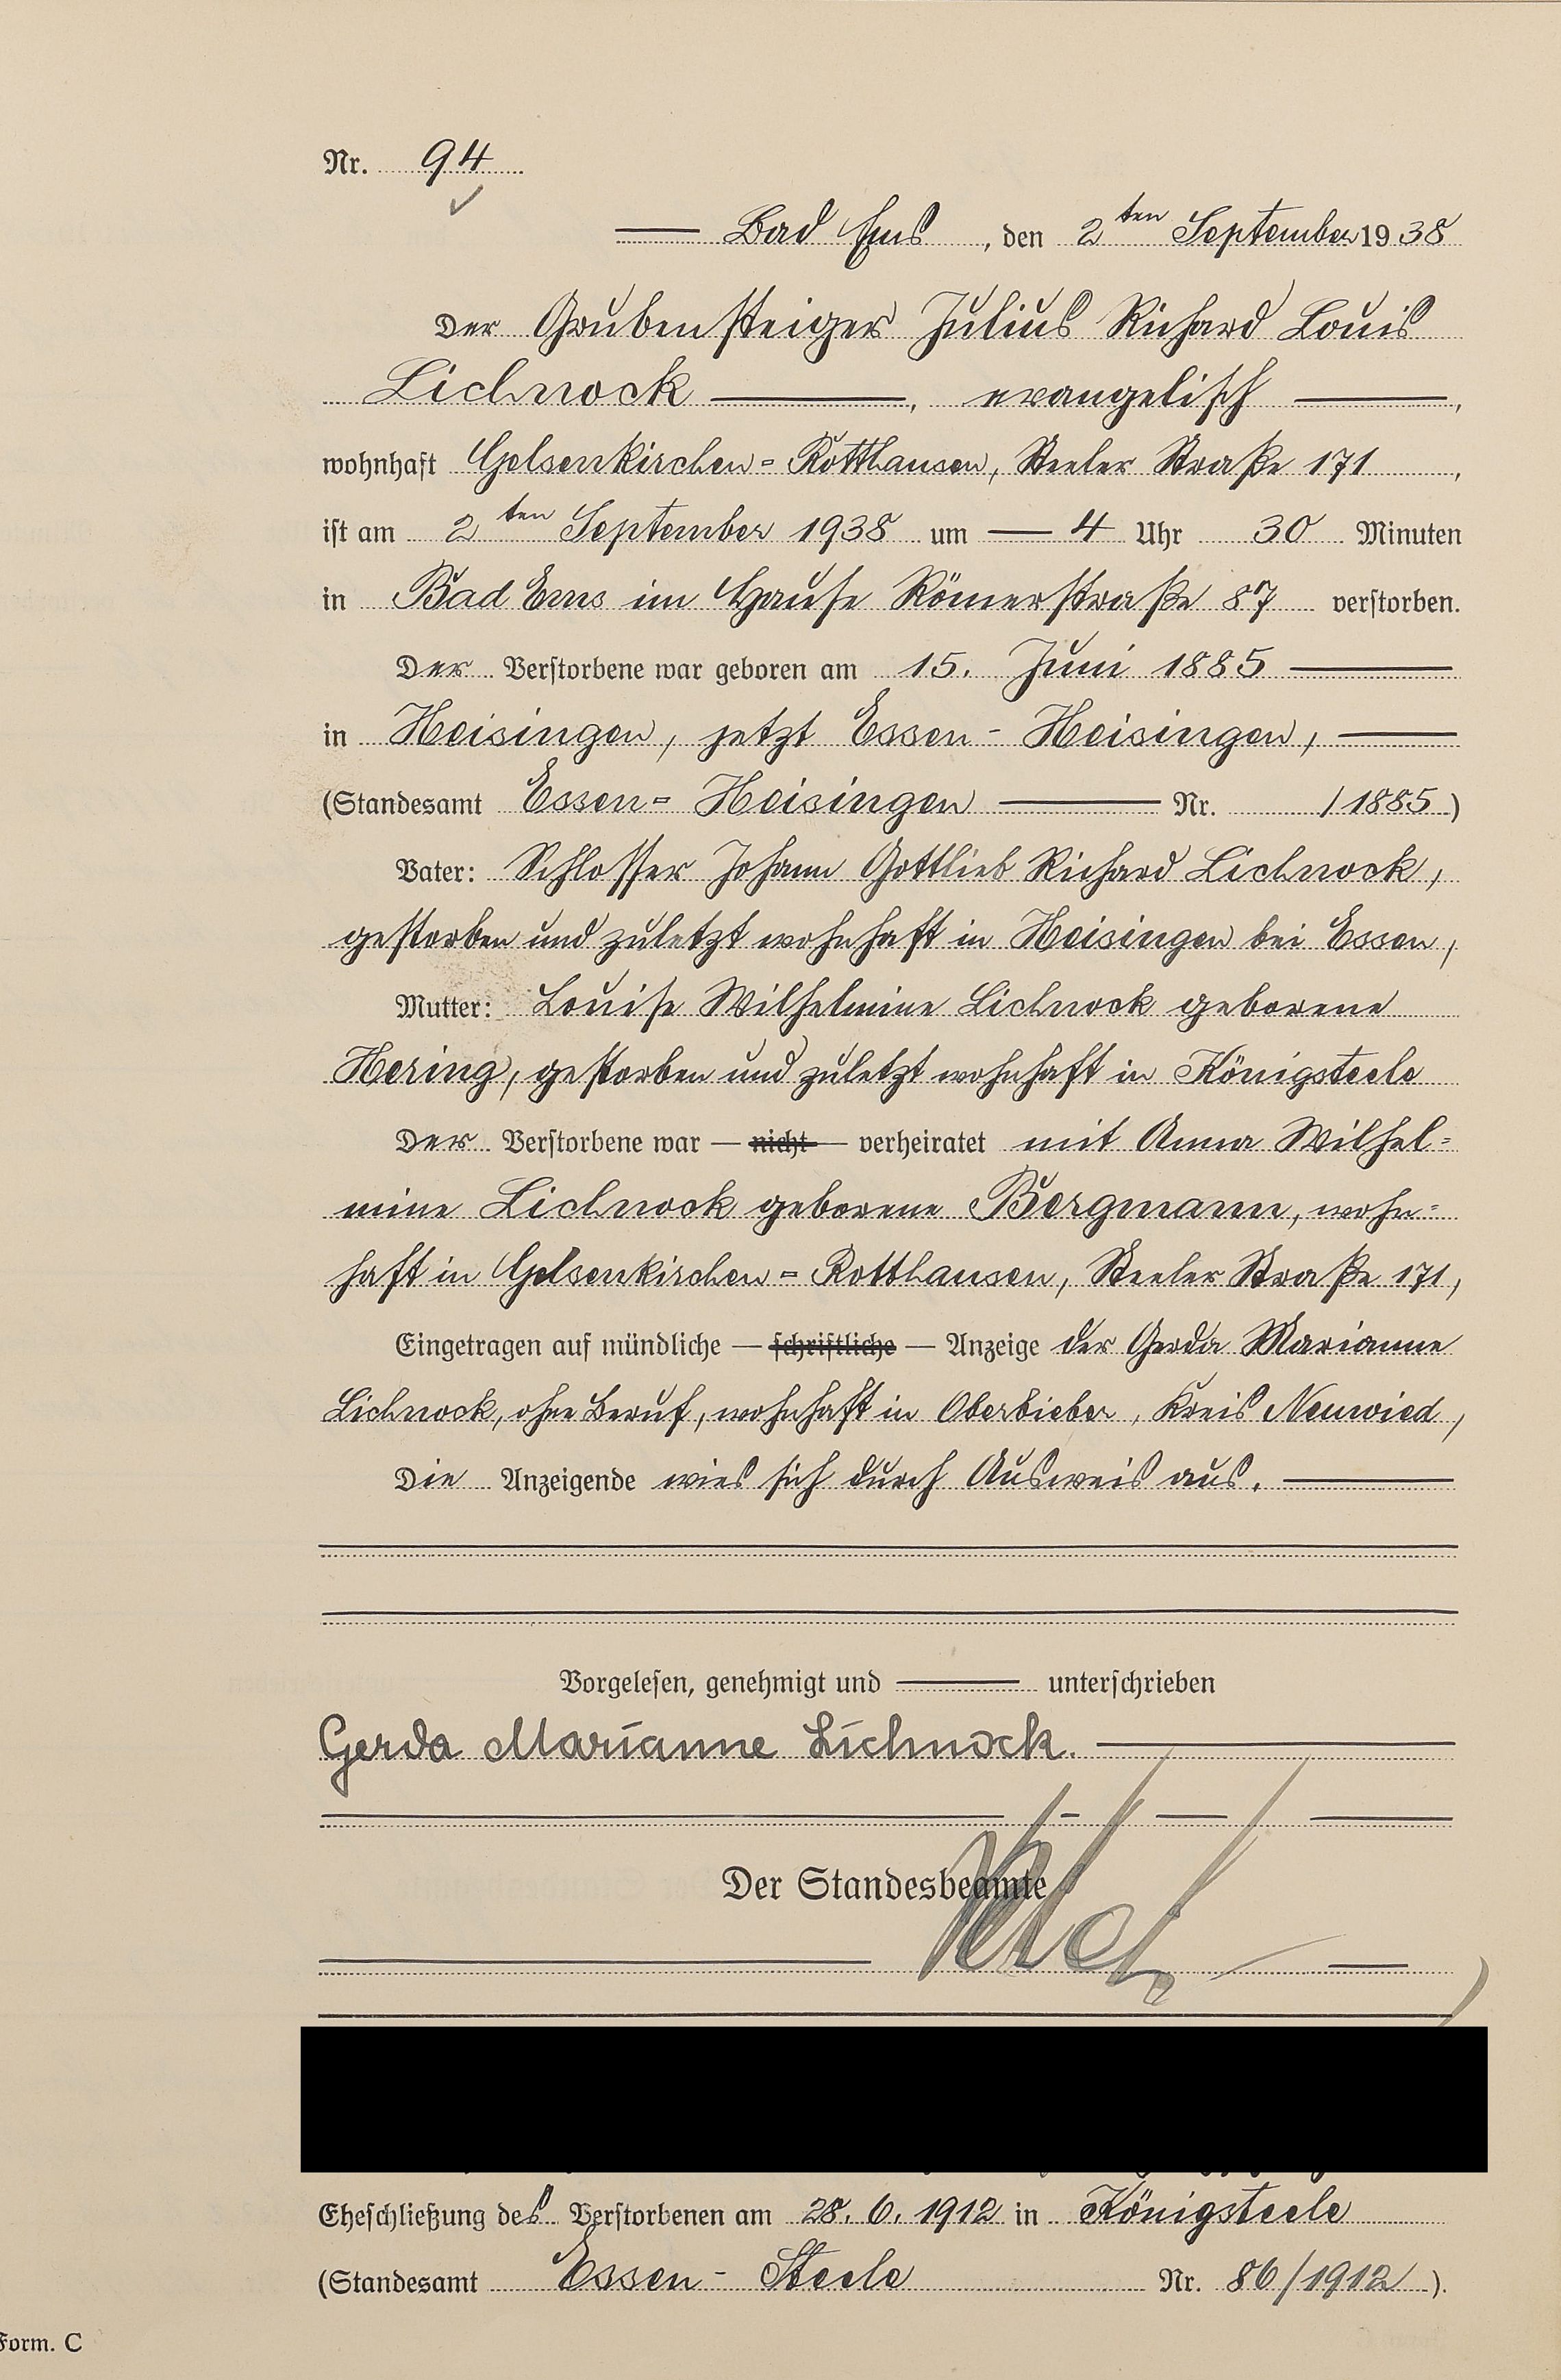 Nr. 94
Bad Ems, den 2ten September 1938
Der Grubensteiger Julius Richard Louis
Lichnock, evangelisch,
wohnhaft Gelsenkirchen=Rotthausen, Steeler Straße 171,
ist am 2ten September 1938 um 4 Uhr 30 Minuten
in Bad Ems im Hause Römerstraße 87 verstorben.
Der Verstorbene war geboren am 15. Juni 1885
in Heisingen, jetzt Essen-Heisingen,
(Standesamt Essen=Heisingen Nr. /1885)
Vater: Schlosser Johann Gottlieb Richard Lichnock,
gestorben und zuletzt wohnhaft in Heisingen bei Essen,
Mutter: Louise Wilhelmine Lichnock geborene
Hering, gestorben und zuletzt wohnhaft in Königsteele
Der Verstorbene war — nicht — verheiratet mit Anna Wilhel=
mine Lichnock geborene Bergmann, wohn=
haft in Gelsenkirchen=Rotthausen, Steeler Straße 171,
Eingetragen auf mündliche — schriftliche — Anzeige der Gerda Marianne
Lichnock, ohne Beruf, wohnhaft in Oberbieber, Kreis Neuwied,
Die Anzeigende wies sich durch Ausweis aus.
Vorgelesen, genehmigt und unterschrieben
Gerda Marianne Lichnock.
Der Standesbeamte
Eheschließung des Verstorbenen am 28. 6. 1912 in Königsteele
(Standesamt Essen-Steele Nr. 86/1912).
Form. C